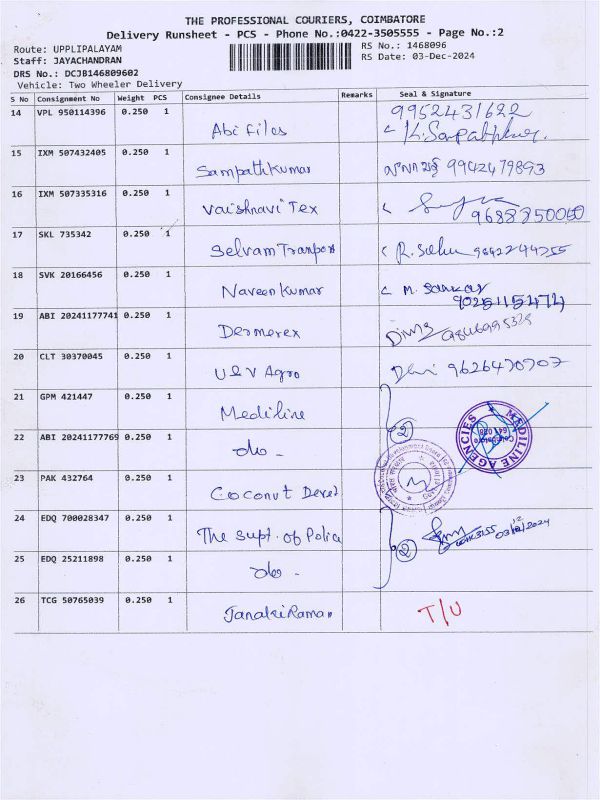 THE PROFESSIONAL COURIERS, COIMBATORE
Delivery Runsheet - PCS - Phone No.:0422-3505555 - Page No.:2
Route: UPPLIPALAYAM
RS No.: 1468096
Staff: JAYACHANDRAN
RS Date: 03-Dec-2024
DRS No.: DCJB146809602
Vehicle: Two Wheeler Delivery
S No Consignment No Weight PCS Consignee Details Remarks Seal & Signature
14 VPL 950114396 0.250 1 Abi Files 9952431622
15 IXM 507432405 0.250 1 Sampathkumar 9942479893
16 IXM 507335316 0.250 1 Vaishnavi Tex 9688350060
17 SKL 735342 0.250 1 Selvam Tranpors
18 SVK 20166456 0.250 1 Naveen Kumar M. Sankar
19 ABI 20241177741 0.250 1 Dermerex
20 CLT 30370045 0.250 1 U & V Agro 9626470707
21 GPM 421447 0.250 1 Mediline
MEDILINE AGENCIES
Coimbatore
22 ABI 20241177769 0.250 1 do - 2
23 PAK 432764 0.250 1 Coconut Devel
24 EDQ 700028347 0.250 1 The Supt. of Police
03/12/2024
25 EDQ 25211898 0.250 1 do - 2
26 TCG 50765039 0.250 1 Janakiraman T/U